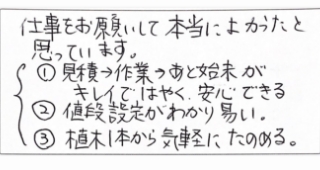 仕事をお願いして本当によかったと
思っています。
① 見積→作業→あと始末が
キレイではやく、安心できる
② 値段設定がわかり易い。
③ 植木1本から気軽にたのめる。